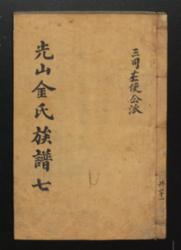 光山金氏族譜 七
三司左使公派